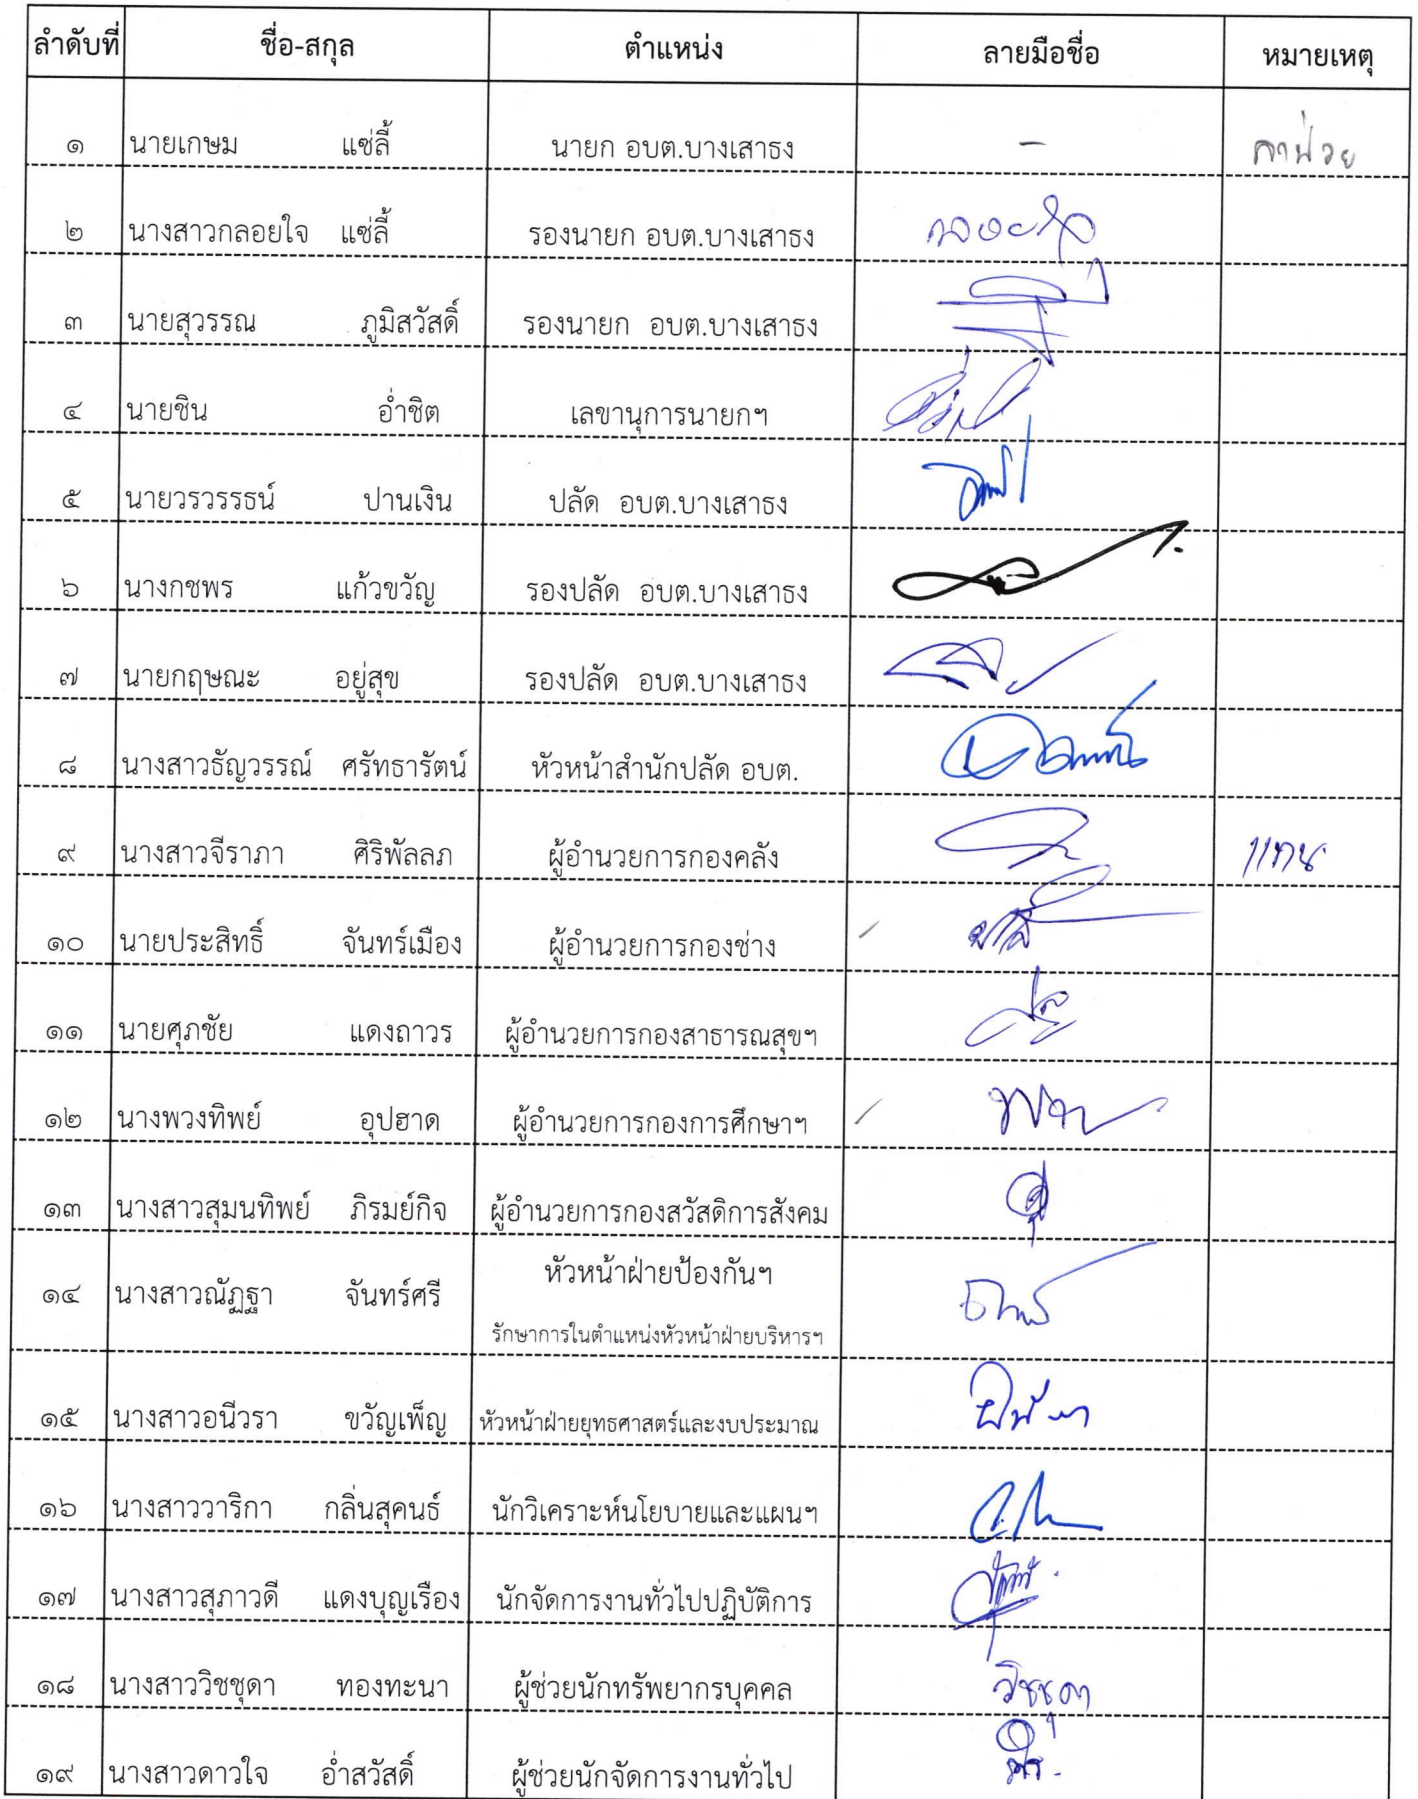 ลำดับที่ ชื่อ-สกุล ตำแหน่ง ลายมือชื่อ หมายเหตุ
๑ นายเกษม แซ่ลี้ นายก อบต.บางเสาธง - ลาป่วย
๒ นางสาวกลอยใจ แซ่ลี้ รองนายก อบต.บางเสาธง
๓ นายสุวรรณ ภูมิสวัสดิ์ รองนายก อบต.บางเสาธง
๔ นายชิน อ่ำชิต เลขานุการนายกฯ
๕ นายวรวรรธน์ ปานเงิน ปลัด อบต.บางเสาธง
๖ นางกชพร แก้วขวัญ รองปลัด อบต.บางเสาธง
๗ นายกฤษณะ อยู่สุข รองปลัด อบต.บางเสาธง
๘ นางสาวธัญวรรณ์ ศรัทธารัตน์ หัวหน้าสำนักปลัด อบต.
๙ นางสาวจีราภา ศิริพัลลภ ผู้อำนวยการกองคลัง แทน
๑๐ นายประสิทธิ์ จันทร์เมือง ผู้อำนวยการกองช่าง
๑๑ นายศุภชัย แดงถาวร ผู้อำนวยการกองสาธารณสุขฯ
๑๒ นางพวงทิพย์ อุปฮาด ผู้อำนวยการกองการศึกษาฯ
๑๓ นางสาวสุมนทิพย์ ภิรมย์กิจ ผู้อำนวยการกองสวัสดิการสังคม
๑๔ นางสาวณัฏฐา จันทร์ศรี หัวหน้าฝ่ายป้องกันฯ
รักษาการในตำแหน่งหัวหน้าฝ่ายบริหารฯ
๑๕ นางสาวอนีวรา ขวัญเพ็ญ หัวหน้าฝ่ายยุทธศาสตร์และงบประมาณ
๑๖ นางสาววาริกา กลิ่นสุคนธ์ นักวิเคราะห์นโยบายและแผนฯ
๑๗ นางสาวสุภาวดี แดงบุญเรือง นักจัดการงานทั่วไปปฏิบัติการ
๑๘ นางสาววิชชุดา ทองทะนา ผู้ช่วยนักทรัพยากรบุคคล วิชชุดา
๑๙ นางสาวดาวใจ อ่ำสวัสดิ์ ผู้ช่วยนักจัดการงานทั่วไป